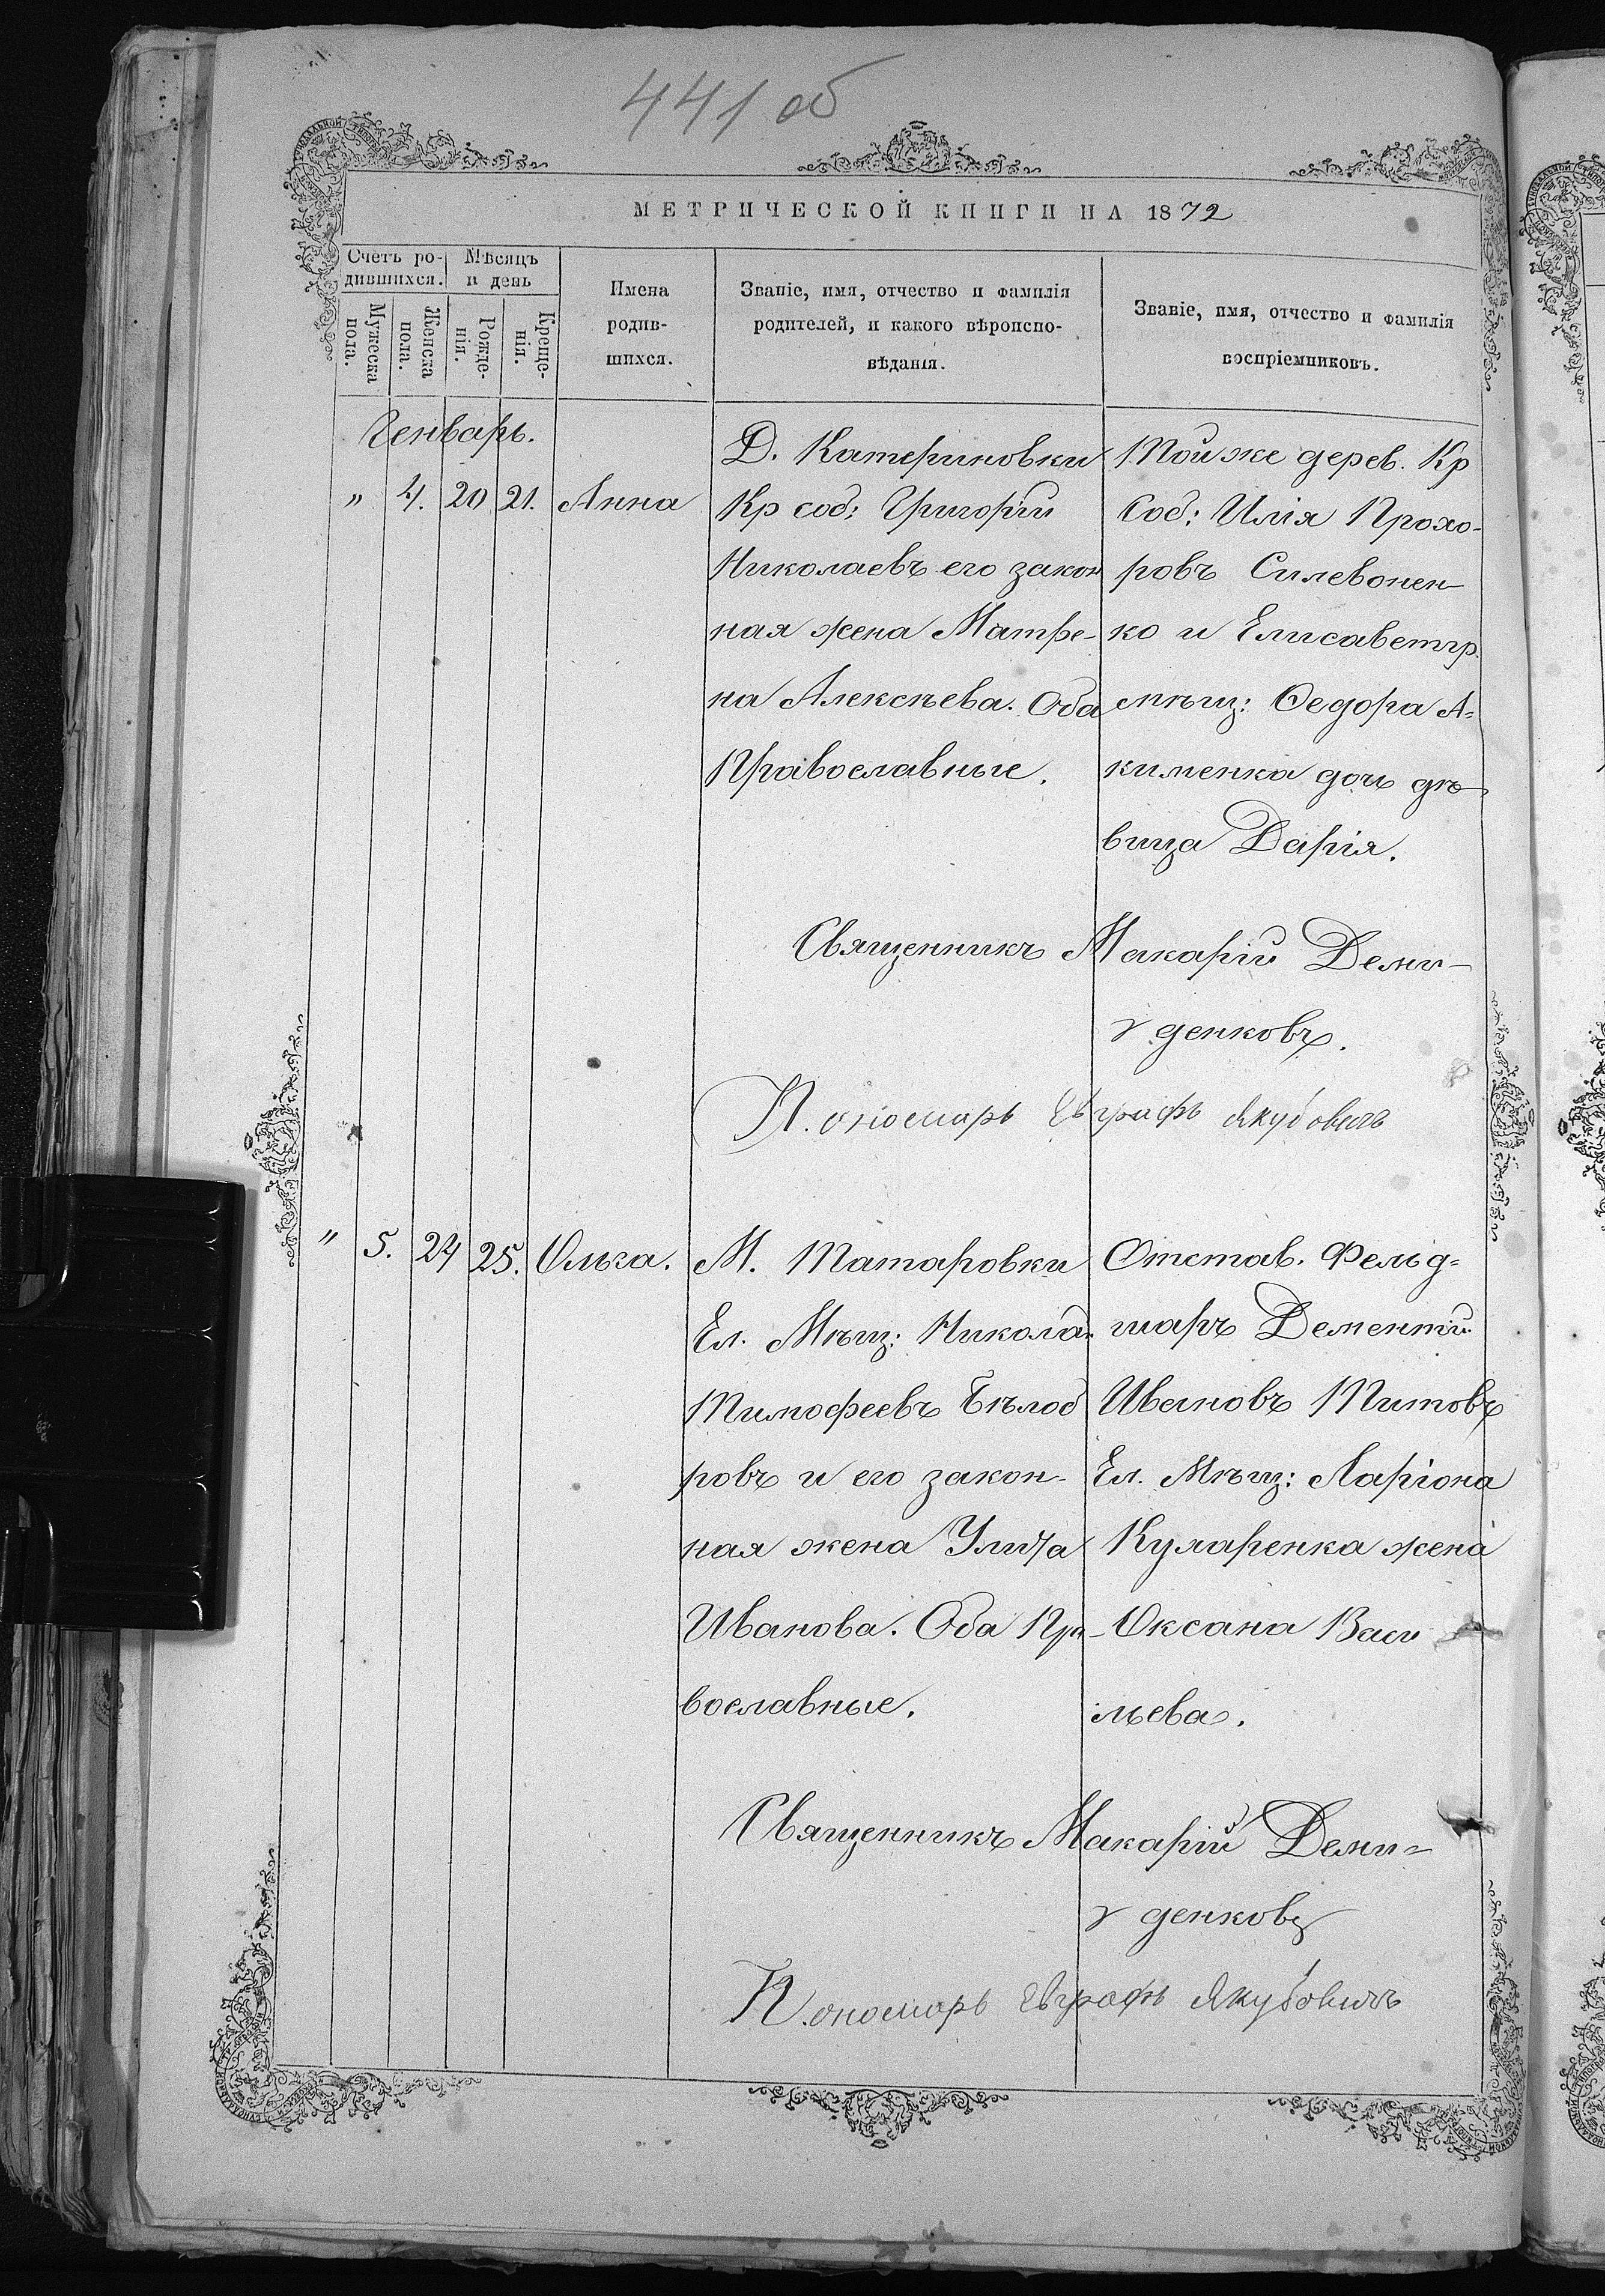 441 об
МЕТРИЧЕСКОЙ КНИГИ НА 1872
Счетъ ро-
дившихся.
Мѣсяцъ
и день
Мужеска
пола.
Женска
пола.
Рожде-
нія.
Креще-
нія.
Имена
родив-
шихся.
Званіе, имя, отчество и фамилія
родителей, и какого вѣроиспо-
вѣданія.
Званіе, имя, отчество и фамилія
воспріемниковъ.
Генварь.
" 4. 20 21. Анна
Д. Катериновки
Кр соб: Григорій
Николаевъ его закон
ная жена Матре-
на Алексѣева. Оба
Православные.
Той же дерев. Кр
Соб: Илія Прохо-
ровъ Силевонен-
ко и Елисаветгр.
мѣщ: Ѳедора А=
кименка дочь дѣ-
вица Дарія.
Священникъ Макарій Деми-
денковъ.
Пономарь Евграфъ Якубовичъ
" 5. 24 25. Ольга.
М. Татаровки
Ел. Мѣщ: Никола
Тимофеевъ Бѣлоб
ровъ и его закон-
ная жена Улита
Иванова. Оба Пра-
вославные.
Отстав. Фельд=
шаръ Дементій
Ивановъ Титовъ
Ел. Мѣщ: Ларіона
Кухаренка жена
Оксана Васи
льева.
Священникъ Макарій Деми=
денковъ
Пономарь Евграфъ Якубовичъ